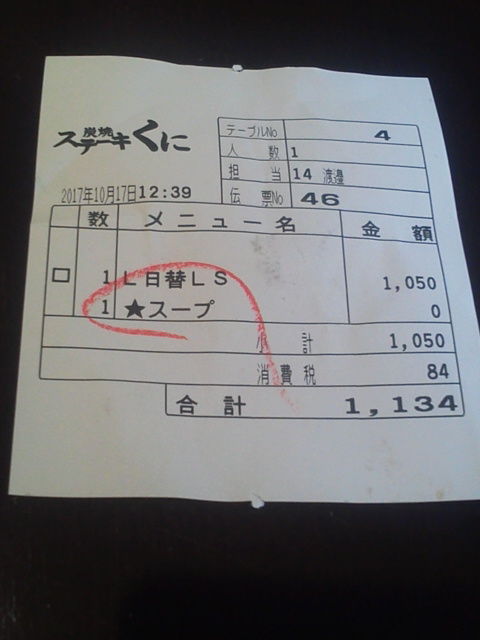 炭焼
ステーキくに
テーブルNo 4
人 数 1
担 当 14 渡邉
伝 票No 46
2017年10月17日12:39
数 メニュー名 金 額
ロ 1 L日替LS 1,050
1 ★スープ 0
小 計 1,050
消費税 84
合 計 1,134